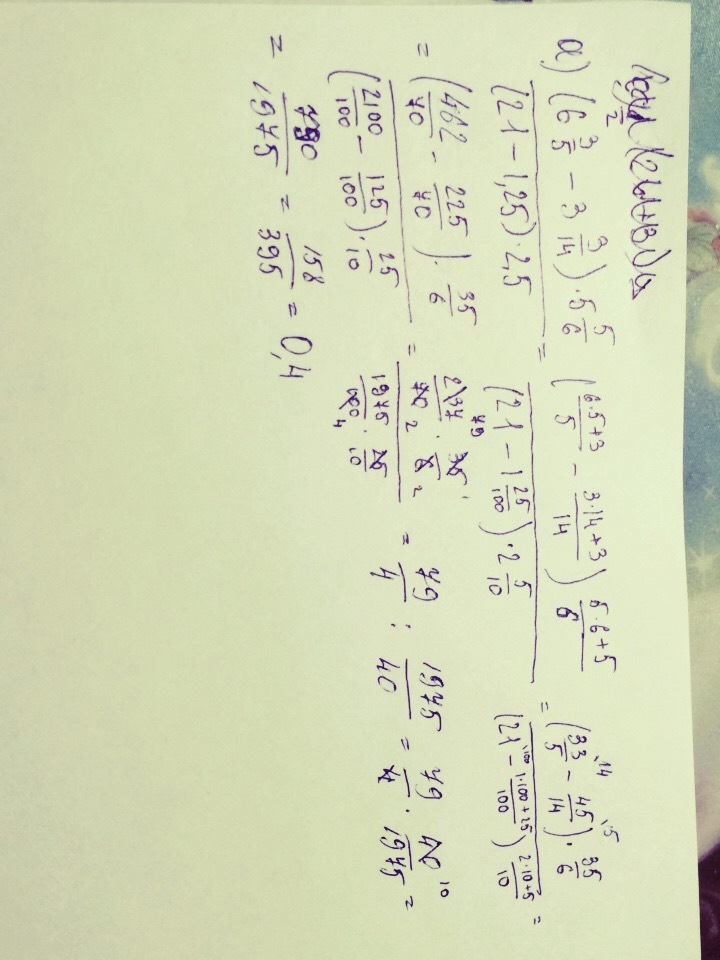 а) (6 3/5 − 3 3/14) · 5 5/6 / (21 − 1,25) · 2,5 = ((6·5+3)/5 − (3·14+3)/14) (5·6+5)/6 / (21 − 1 25/100) · 2 5/10 = (33/5 − 45/14) · 35/6 / (21 − (1·100+25)/100) (2·10+5)/10 =
= (462/70 − 225/70) · 35/6 / (2100/100 − 125/100) · 25/10 = 237/70 · 35/6 / 1975/100 · 25/10 = 79/4 : 1975/40 = 79/4 · 40/1975 =
= 790/1975 = 158/395 = 0,4